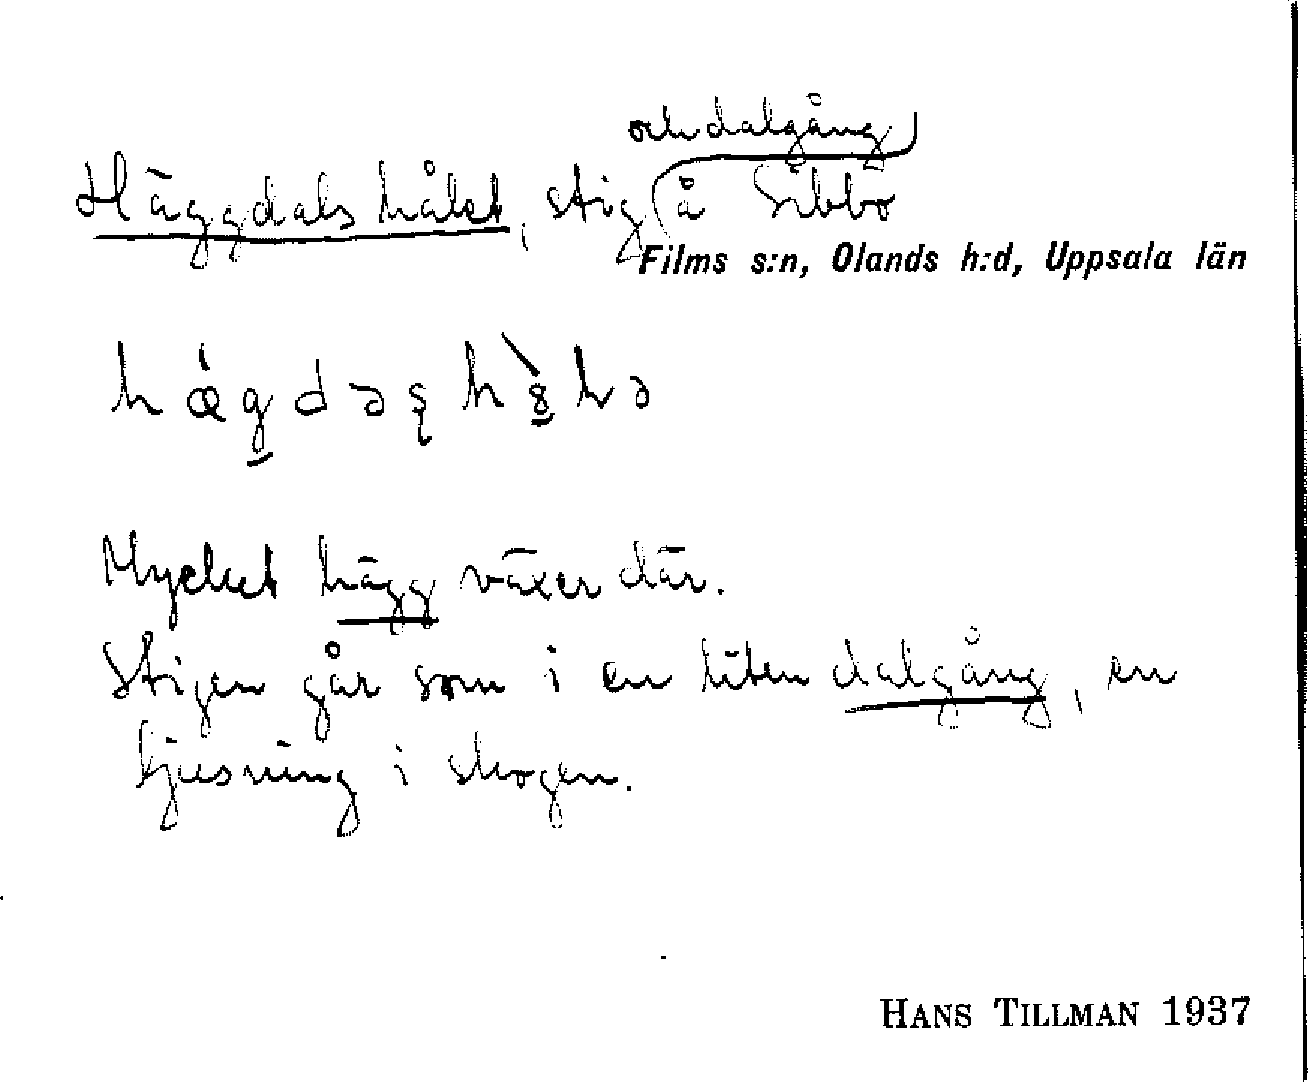 och dalgång
Häggdals hålet, stig å Sibbo
Films s:n, Olands h:d, Uppsala län
Mycket hägg växer där.
Stigen går som i en liten dalgång, en
ljusning i skogen.
HANS TILLMAN 1937